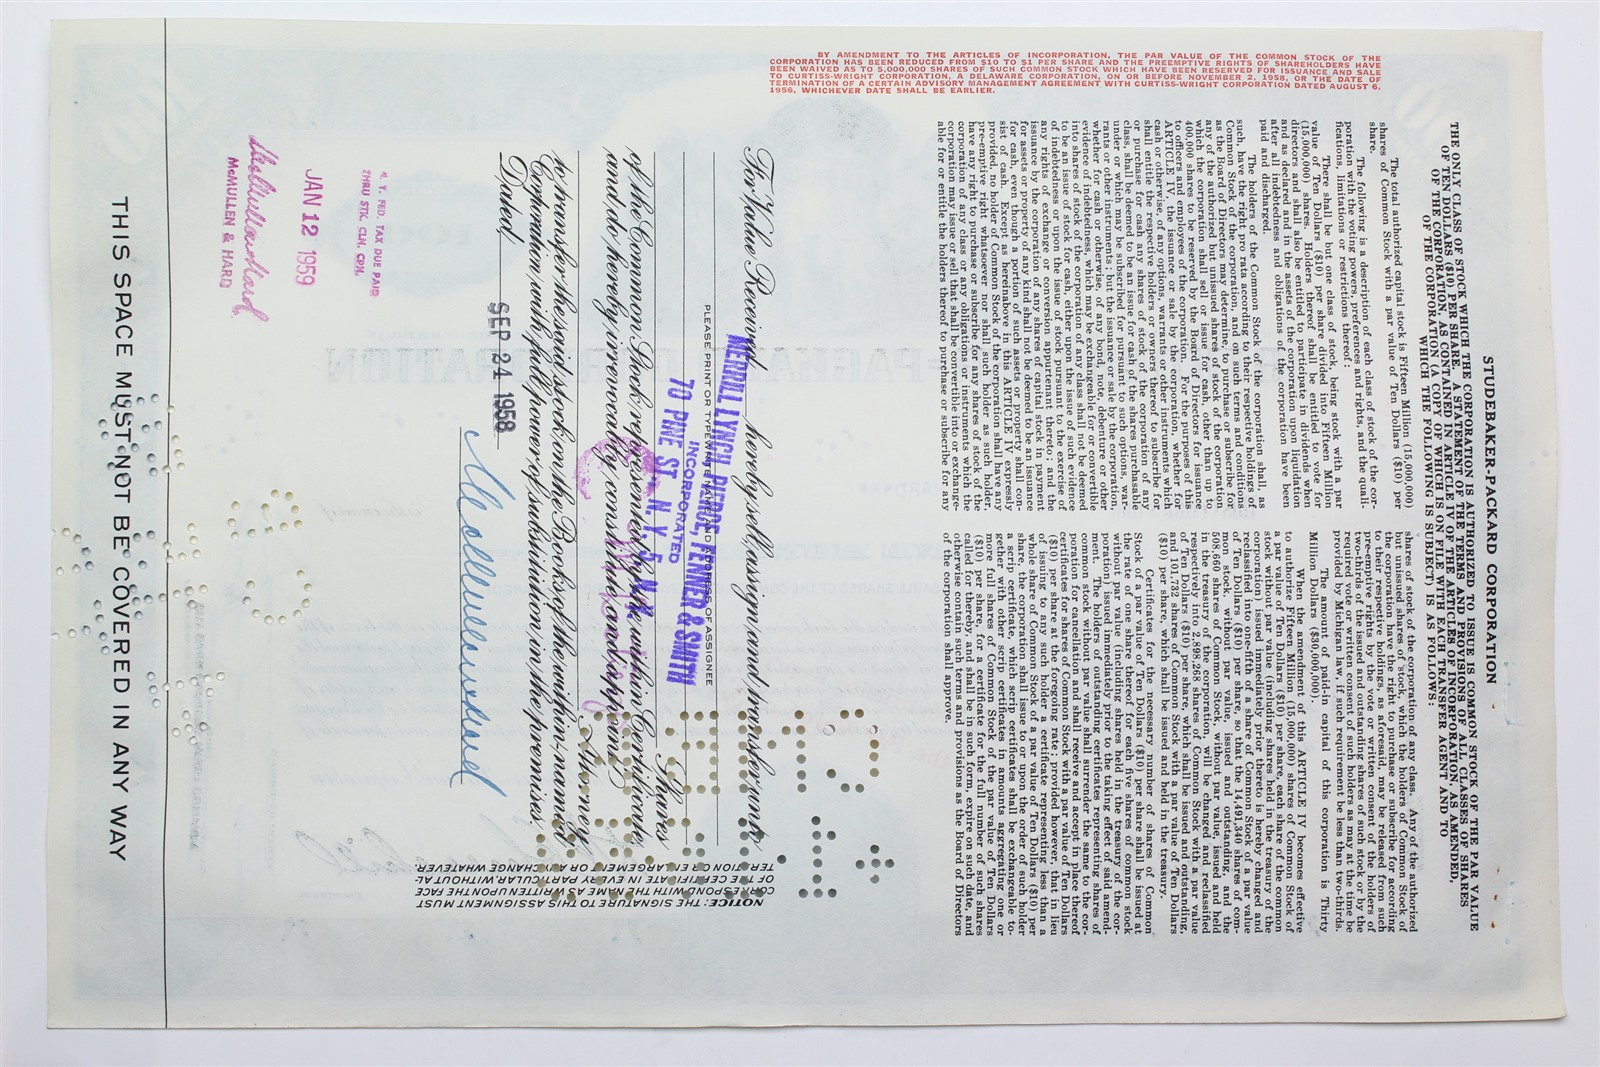 STUDEBAKER-PACKARD CORPORATION
THE ONLY CLASS OF STOCK WHICH THE CORPORATION IS AUTHORIZED TO ISSUE IS COMMON STOCK OF THE PAR VALUE
OF TEN DOLLARS ($10) PER SHARE. A STATEMENT OF THE TERMS AND PROVISIONS OF ALL CLASSES OF SHARES
OF THE CORPORATION, AS CONTAINED IN ARTICLE IV OF THE ARTICLES OF INCORPORATION, AS AMENDED,
OF THE CORPORATION (A COPY OF WHICH IS ON FILE WITH EACH TRANSFER AGENT AND TO
WHICH THE FOLLOWING IS SUBJECT) IS AS FOLLOWS:
The total authorized capital stock is Fifteen Million (15,000,000)
shares of Common Stock with a par value of Ten Dollars ($10) per
share.
The following is a description of each class of stock of the cor-
poration with the voting powers, preferences and rights, and the quali-
fications, limitations or restrictions thereof:
There shall be but one class of stock, being stock with a par
value of Ten Dollars ($10) per share divided into Fifteen Million
(15,000,000) shares. Holders thereof shall be entitled to vote for
directors and shall also be entitled to participate in dividends when
and as declared and in the assets of the corporation upon liquidation
after all indebtedness and obligations of the corporation have been
paid and discharged.
The holders of the Common Stock of the corporation shall, as
such, have the right pro rata according to their respective holdings of
Common Stock of the corporation, and on such terms and conditions
as the Board of Directors may determine, to purchase or subscribe for
any of the authorized but unissued shares of stock of the corporation
which the corporation shall sell or issue for cash, other than up to
400,000 shares to be reserved by the Board of Directors for issuance
to officers and employees of the corporation. For the purposes of this
ARTICLE IV, the issuance or sale by the corporation, whether for
cash or otherwise, of any options, warrants or other instruments which
shall entitle the respective holders or owners thereof to subscribe for
or purchase for cash any shares of stock of the corporation of any
class, shall be deemed to be an issue for cash of the shares purchasable
under or which may be subscribed for pursuant to such options, war-
rants or other instruments; but the issuance or sale by the corporation,
whether for cash or otherwise, of any bond, note, debenture or other
evidence of indebtedness, which may be exchangeable for or convertible
into shares of stock of the corporation of any class shall not be deemed
to be an issue of stock for cash, either upon the issue of such evidence
of indebtedness or upon the issue of stock pursuant to the exercise of
any rights of exchange or conversion appurtenant thereto; and the
issuance by the corporation of any shares of capital stock in payment
for assets or property of any kind shall not be deemed to be an issuance
for cash, even though a portion of such assets or property shall con-
sist of cash. Except as hereinabove in this ARTICLE IV expressly
provided, no holder of Common Stock of the corporation shall have any
pre-emptive right whatsoever nor shall such holder, as such holder,
have any right to purchase or subscribe for any shares of stock of the
corporation of any class or any obligations or instruments which the
corporation may issue or sell that shall be convertible into or exchange-
able for or entitle the holders thereof to purchase or subscribe for any
shares of stock of the corporation of any class. Any of the authorized
but unissued shares of stock, which the holders of Common Stock of
the corporation have the right to purchase or subscribe for according
to their respective holdings, as aforesaid, may be released from such
pre-emptive rights by the vote or written consent of the holders of
two-thirds of the issued and outstanding shares of such stock or by the
required vote or written consent of such holders as may at the time be
provided by Michigan law, if such requirement be less than two-thirds.
The amount of paid-in capital of this corporation is Thirty
Million Dollars ($30,000,000).
When the amendment of this ARTICLE IV becomes effective
to authorize Fifteen Million (15,000,000) shares of Common Stock of
a par value of Ten Dollars ($10) per share, each share of the common
stock without par value (including shares held in the treasury of the
corporation) issued immediately prior thereto is hereby changed and
reclassified into one-fifth of a share of Common Stock of a par value
of Ten Dollars ($10) per share, so that the 14,491,340 shares of com-
mon stock, without par value, issued and outstanding, and the
508,660 shares of Common Stock, without par value, issued and held
in the treasury of the corporation, will be changed and reclassified
respectively into 2,898,268 shares of Common Stock with a par value
of Ten Dollars ($10) per share, which shall be issued and outstanding,
and 101,732 shares of Common Stock with a par value of Ten Dollars
($10) per share, which shall be issued and held in the treasury.
Certificates for the necessary number of shares of Common
Stock of a par value of Ten Dollars ($10) per share shall be issued at
the rate of one share thereof for each five shares of common stock
without par value (including shares held in the treasury of the cor-
poration) issued immediately prior to the taking effect of said amend-
ment. The holders of outstanding certificates representing shares of
common stock without par value shall surrender the same to the cor-
poration for cancellation and shall receive and accept in place thereof
certificates for shares of Common Stock with a par value of Ten Dollars
($10) per share at the foregoing rate; provided however, that in lieu
of issuing to any such holder a certificate representing less than a
whole share of Common Stock of a par value of Ten Dollars ($10) per
share, the corporation shall issue to or upon the order of such holder
a scrip certificate which scrip certificates shall be exchangeable to-
gether with other scrip certificates in amounts aggregating one or
more full shares of Common Stock of the par value of Ten Dollars
($10) per share, for a certificate for the full number of such shares
called for thereby, and shall be in such form, expire on such date, and
otherwise contain such terms and provisions as the Board of Directors
of the corporation shall approve.
BY AMENDMENT TO THE ARTICLES OF INCORPORATION, THE PAR VALUE OF THE COMMON STOCK OF THE
CORPORATION HAS BEEN REDUCED FROM $10 TO $1 PER SHARE AND THE PREEMPTIVE RIGHTS OF SHAREHOLDERS HAVE
BEEN WAIVED AS TO 5,000,000 SHARES OF SUCH COMMON STOCK WHICH HAVE BEEN RESERVED FOR ISSUANCE AND SALE
TO CURTISS-WRIGHT CORPORATION, A DELAWARE CORPORATION, ON OR BEFORE NOVEMBER 2, 1958, OR THE DATE OF
TERMINATION OF A CERTAIN ADVISORY MANAGEMENT AGREEMENT WITH CURTISS-WRIGHT CORPORATION DATED AUGUST 6,
1956, WHICHEVER DATE SHALL BE EARLIER.
For Value Received, hereby sell, assign and transfer unto
MERRILL LYNCH, PIERCE, FENNER & SMITH
INCORPORATED
70 PINE ST. N. Y. 5, N. Y.
PLEASE PRINT OR TYPEWRITE NAME AND ADDRESS OF ASSIGNEE
Shares
of the Common Stock represented by the within Certificate,
and do hereby irrevocably constitute and appoint
Attorney
to transfer the said stock on the Books of the within-named
Corporation with full power of substitution in the premises.
Dated,
SEP 24 1958
McMullen & Hard
NOTICE: THE SIGNATURE TO THIS ASSIGNMENT MUST
CORRESPOND WITH THE NAME AS WRITTEN UPON THE FACE
OF THE CERTIFICATE IN EVERY PARTICULAR, WITHOUT AL-
TERATION OR ENLARGEMENT OR ANY CHANGE WHATEVER.
N. Y. FED. TAX DUE PAID
THRU STK. CLN. CPN.
JAN 12 1959
McMullen & Hard
McMULLEN & HARD
THIS SPACE MUST NOT BE COVERED IN ANY WAY